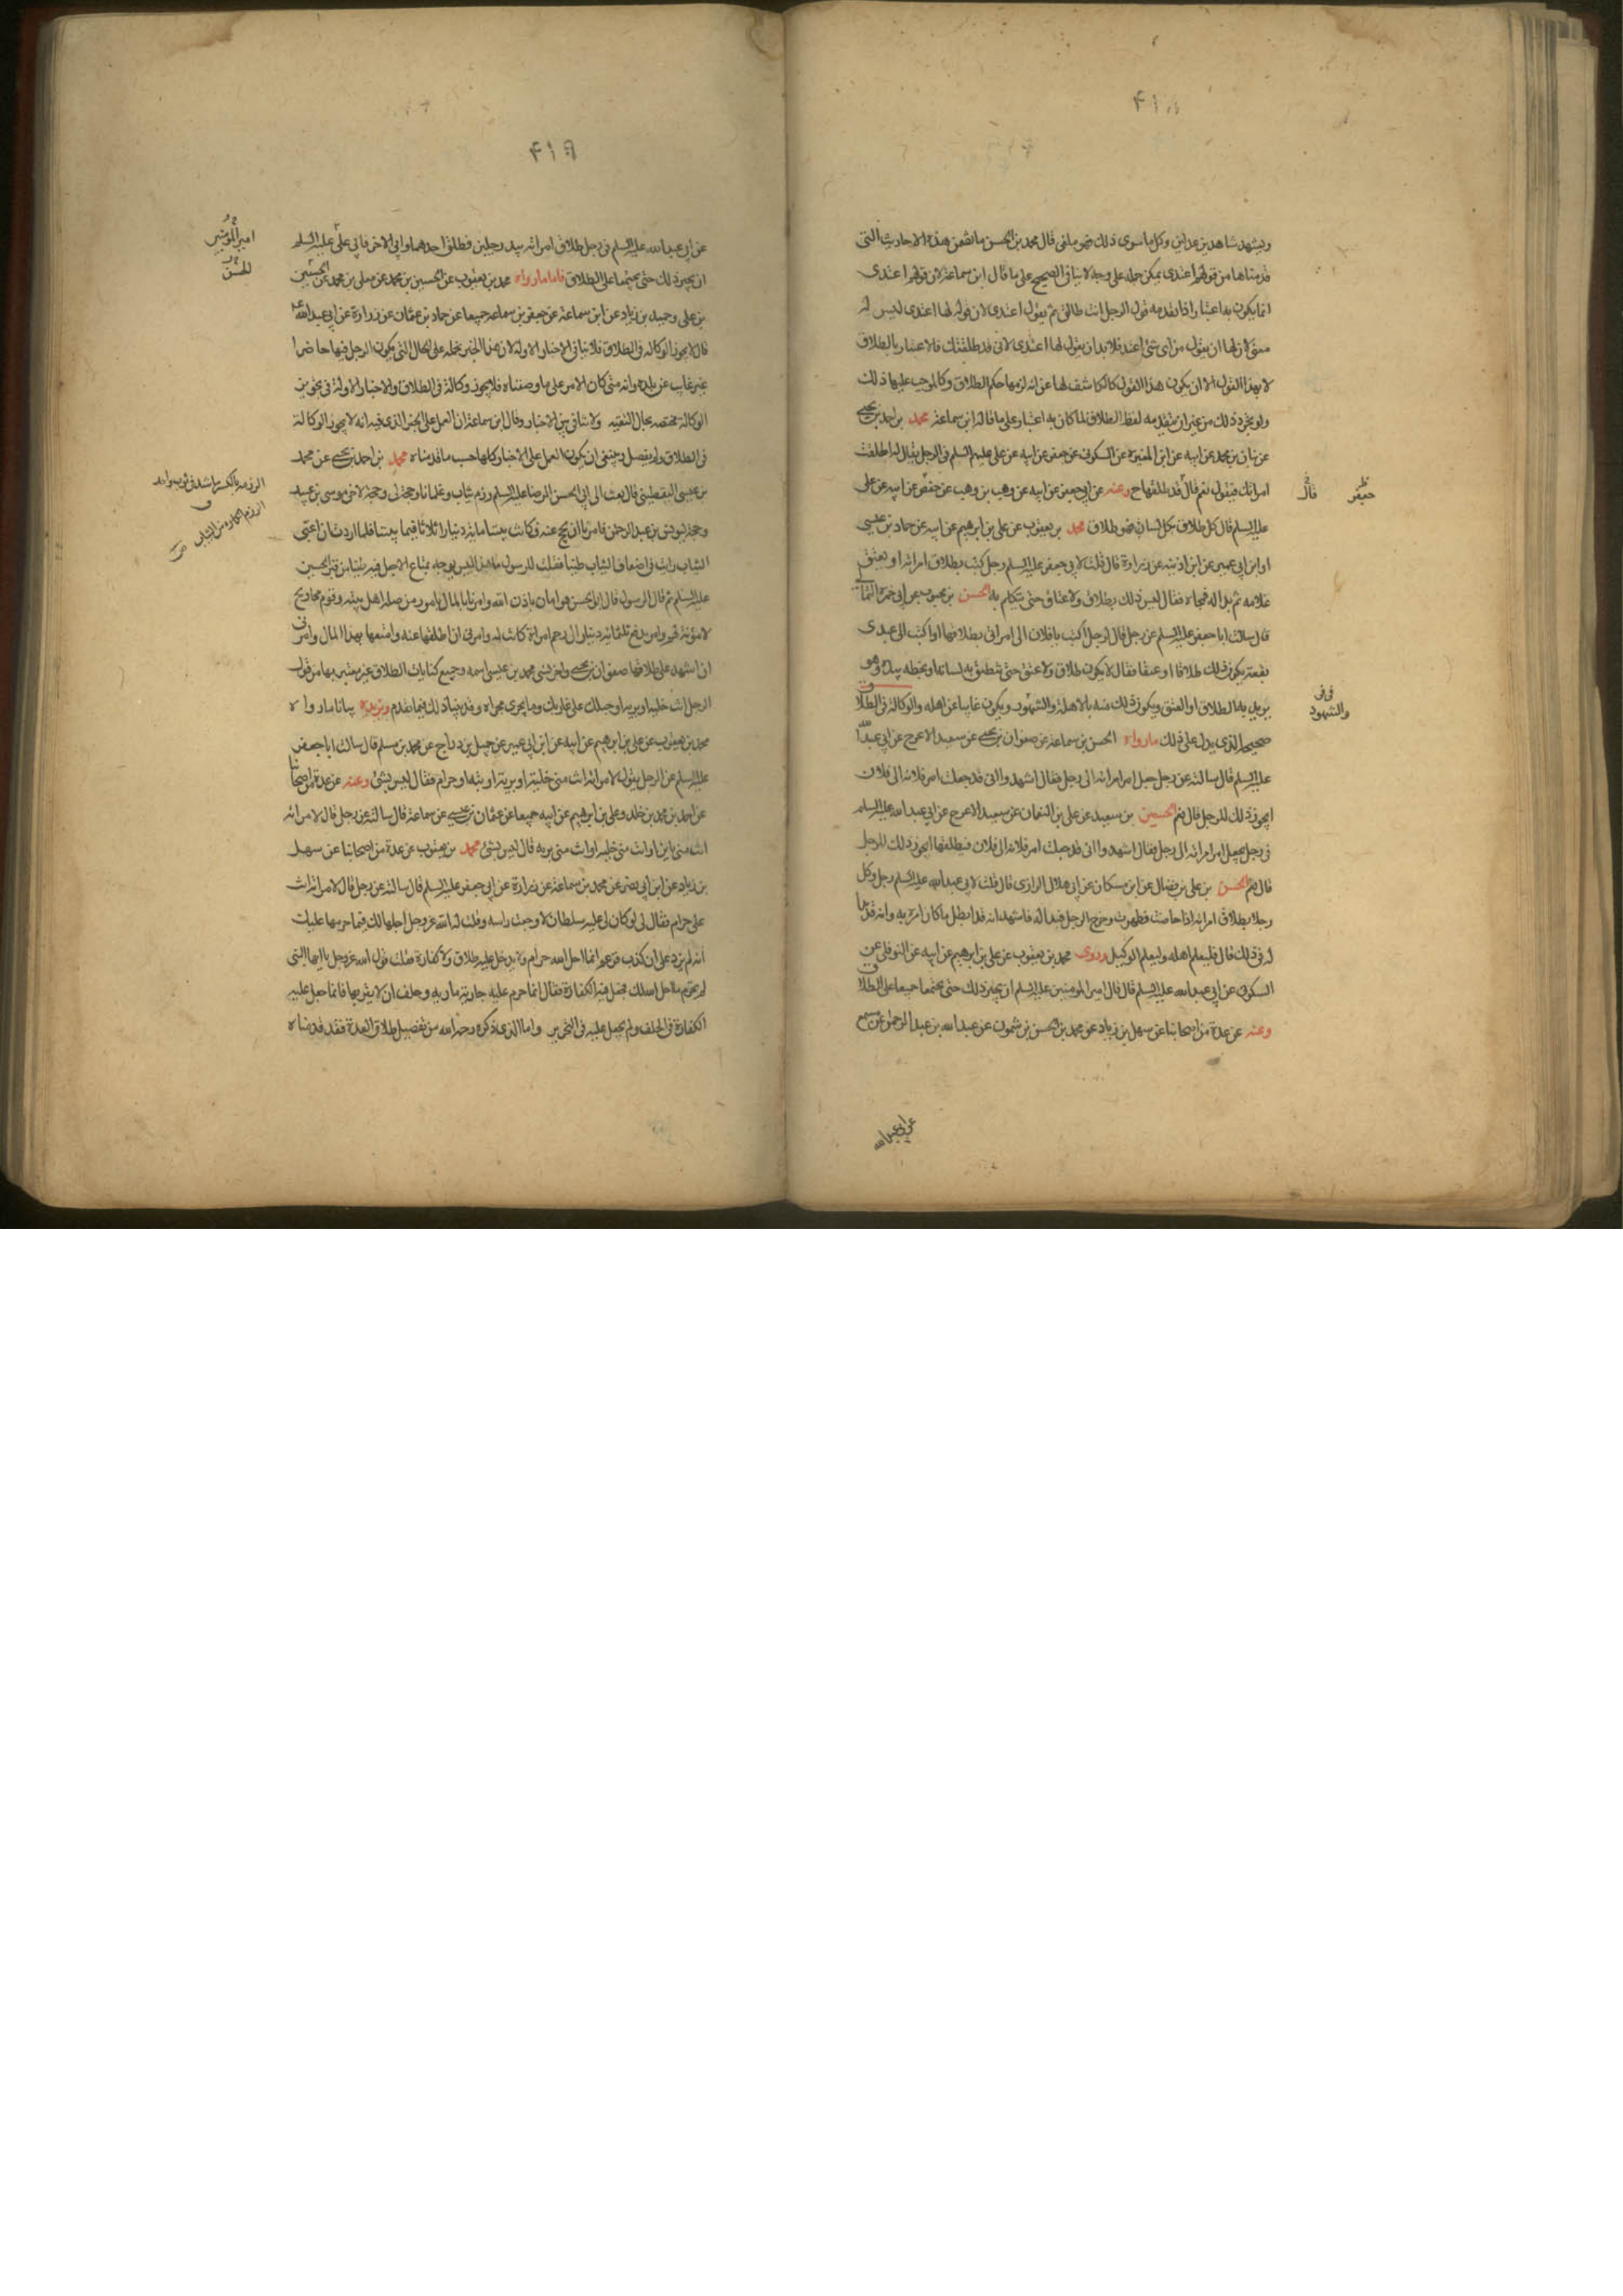 ۴۱۸
ويشهد شاهدين عدلين وكل ما سوى ذلك فهو ملغى قال محمد بن الحسن ما تضمن هذه الاحاديث التى
قدمناها من قولهم اعتدى يمكن حمله على وجه لا ينافى الصحيح على ما قال ابن سماعة لان قولهم اعتدى
انما يكون به اعتبار اذا تقدمه قول الرجل انت طالق ثم يقول اعتدى لان قوله لها اعتدى ليس له
معنى لان لها ان يقول من اى شئ اعتد فلا بد ان يقول لها اعتدى لانى قد طلقتك فالاعتبار بالطلاق
لا بهذا القول الا ان يكون هذا القول كالكاشف لها عن انه لزمها حكم الطلاق وكالموجب عليها ذلك
ولو تجرد ذلك من غير ان يتقدمه لفظ الطلاق لما كان به اعتبار على ما قاله ابن سماعة محمد بن احمد بن يحيى
عن بنان بن محمد عن ابيه عن ابن المغيرة عن السكونى عن جعفر عن ابيه عن على عليهم السلم فى الرجل يقال له اطلقت
امراتك فيقول نعم قال قد طلقها ح وعنه عن ابى جعفر عن ابيه عن وهب بن وهب عن جعفر عن ابيه عن على
جعفر
قال
عليه السلم قال كل طلاق بكل لسان فهو طلاق محمد بن يعقوب عن على بن ابرهيم عن ابيه عن حماد بن عيسى
او ابن ابى عمير عن ابن اذينة عن زرارة قال قلت لابى جعفر عليه السلم رجل كتب بطلاق امراته او بعتق
غلامه ثم بدا له فمحاه فقال ليس ذلك بطلاق ولا عتاق حتى يتكلم به الحسن بن محبوب عن ابى حمزة الثمالى
قال سالت ابا جعفر عليه السلم عن رجل قال لرجل اكتب يا فلان الى امراتى بطلاقها او اكتب الى عبدى
بعتقه يكون ذلك طلاقا او عتقا فقال لا يكون طلاق ولا عتق حتى تنطق به لسانه او يخطه بيده وهو
يريد به الطلاق او العتق ويكون ذلك منه بالاهلة والشهود ويكون غايبا عن اهله والوكالة فى الطلاق
والشهود
صحيحة الذى يدل على ذلك ما رواه الحسن بن سماعة عن صفوان بن يحيى عن سعيد الاعرج عن ابى عبد الله
عليه السلم قال سالته عن رجل جعل امر امراته الى رجل فقال اشهدوا انى قد جعلت امر فلانة الى فلان
ايجوز ذلك للرجل قال نعم الحسين بن سعيد عن على بن النعمان عن سعيد الاعرج عن ابى عبد الله عليه السلم
فى رجل يجعل امر امراته الى رجل فقال اشهدوا انى قد جعلت امر فلانة الى فلان فيطلقها ايجوز ذلك للرجل
قال نعم الحسن بن على بن فضال عن ابن مسكان عن ابى هلال الرازى قال قلت لابى عبد الله عليه السلم رجل وكل
رجلا بطلاق امراته اذا حاضت وطهرت وخرج الرجل فبدا له فاشهد انه قد ابطل ما كان امره به وانه قد بدا
له فى ذلك قال فليعلم اهله وليعلم الوكيل وروى محمد بن يعقوب عن على بن ابرهيم عن ابيه عن النوفلى عن
السكونى عن ابى عبد الله عليه السلم قال قال امير المومنين عليه السلم ان يجيز ذلك حتى يجتمعا جميعا على الطلاق
وعنه عن عدة من اصحابنا عن سهل بن زياد عن محمد بن الحسن بن شمون عن عبد الله بن عبد الرحمن عن مسمع
عن ابى عبد الله
۴۱۹
عن ابى عبد الله عليه السلم فى رجل جعل طلاق امراته بيد رجلين فطلق احدهما وابى الاخر فابى على عليه السلم
امير المومنين
ان يجيز ذلك حتى يجتمعا على الطلاق فاما ما رواه محمد بن يعقوب عن الحسين بن محمد عن معلى بن محمد عن الحسين
الحسن
بن على وحميد بن زياد عن ابن سماعة عن جعفر بن سماعة جميعا عن حماد بن عثمان عن زرارة عن ابى عبد الله
قال لا يجوز الوكالة فى الطلاق فلا ينافى الاخبار الاولة لان هذا الخبر نحمله على الحال التى يكون الرجل فيها حاضرا
غير غايب عن بلده وانه متى كان الامر على ما وصفناه فلا يجوز وكالته فى الطلاق والاخبار الاولة فى تجويز
الوكالة مختصة بحال الغيبة ولا تنافى بين الاخبار وقال ابن سماعة ان العمل على الخبر الذى فيه انه لا يجوز الوكالة
فى الطلاق ولم يفصل وينبغى ان يكون العمل على الاخبار كلها حسب ما قدمناه محمد بن احمد بن يحيى عن محمد
بن عيسى اليقطينى قال بعث الى ابى الحسن الرضا عليه السلم رزم ثياب وغلمانا وحجة لى وحجة لاخى موسى بن عبيد
الرزمة بالكسر ما شد فى ثوب واحد
وحجة ليونس بن عبد الرحمن فامرنا ان نحج عنه فكانت بيننا ماية دينار اثلاثا فيما بيننا فلما اردت ان اعبى
الثياب رايت فى اضعاف الثياب طينا فقلت للرسول ما هذا قال ليس يوجه بمتاع الا جعل فيه طينا من قبر الحسين
عليه السلم ثم قال الرسول قال ابو الحسن هو امان باذن الله وامرنا بالمال بامور من صلة اهل بيته وقوم محاويج
لا مؤنة لهم وامر بدفع ثلثماية دينار الى رحم امراة كانت له وامرنى ان اطلقها عنه وامتعها بهذا المال وامرنى
ان اشهد على طلاقها صفوان بن يحيى واخر نسى محمد بن عيسى اسمه وجميع كنايات الطلاق غير معتبر بها من قول
الرجل انت خلية او برية او حبلك على غاربك وما يجرى مجراه وقد بينا ذلك فيما تقدم ونزيده بيانا ما رواه
محمد بن يعقوب عن على بن ابرهيم عن ابيه عن ابن ابى عمير عن جميل بن دراج عن محمد بن مسلم قال سالت ابا جعفر
عليه السلم عن الرجل يقول لامراته انت منى خلية او برية او بتة او حرام فقال ليس بشئ وعنه عن عدة من اصحابنا
عن احمد بن محمد بن خلد وعلى بن ابرهيم عن ابيه جميعا عن عثمان بن عيسى عن سماعة قال سالته عن رجل قال لامراته
انت منى باين او انت منى خلية او انت منى برية قال ليس بشئ محمد بن يعقوب عن عدة من اصحابنا عن سهل
بن زياد عن ابن ابى نصر عن محمد بن سماعة عن زرارة عن ابى جعفر عليه السلم قال سالته عن رجل قال لامراته انت
على حرام فقال لى لو كان لى عليه سلطان لاوجعت راسه وقلت له الله عز وجل احلها لك فما حرمها عليك
انه لم يزد على ان كذب فزعم ان ما احل الله حرام ولا يدخل عليه طلاق ولا كفارة فقلت قول الله عز وجل يا ايها النبى
لم تحرم ما احل الله لك فجعل فيه الكفارة فقال انما حرم عليه جاريته مارية وحلف ان لا يقربها فانما جعل عليه
الكفارة فى الحلف ولم يجعل عليه فى التحريم واما الذى ذكره رحمه الله من تفصيل طلاق العدة فقد قدمناه